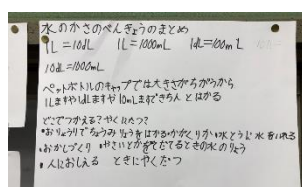 水のかさのべんきょうのまとめ
1L=10dL 1L=1000mL 1dL=100mL
10dL=1000mL
ペットボトルのキャップでは大きさがちがうから
1Lますや1dLますや10mLますできちんとはかる
どこでつかえる?やくにたつ?
・おりょうりでちょうみりょうをはかるかがくりか水とうに水をいれる
・おかしづくり やさいとかをそだてるときの水のりょう
・人におしえる ときにやくたつ